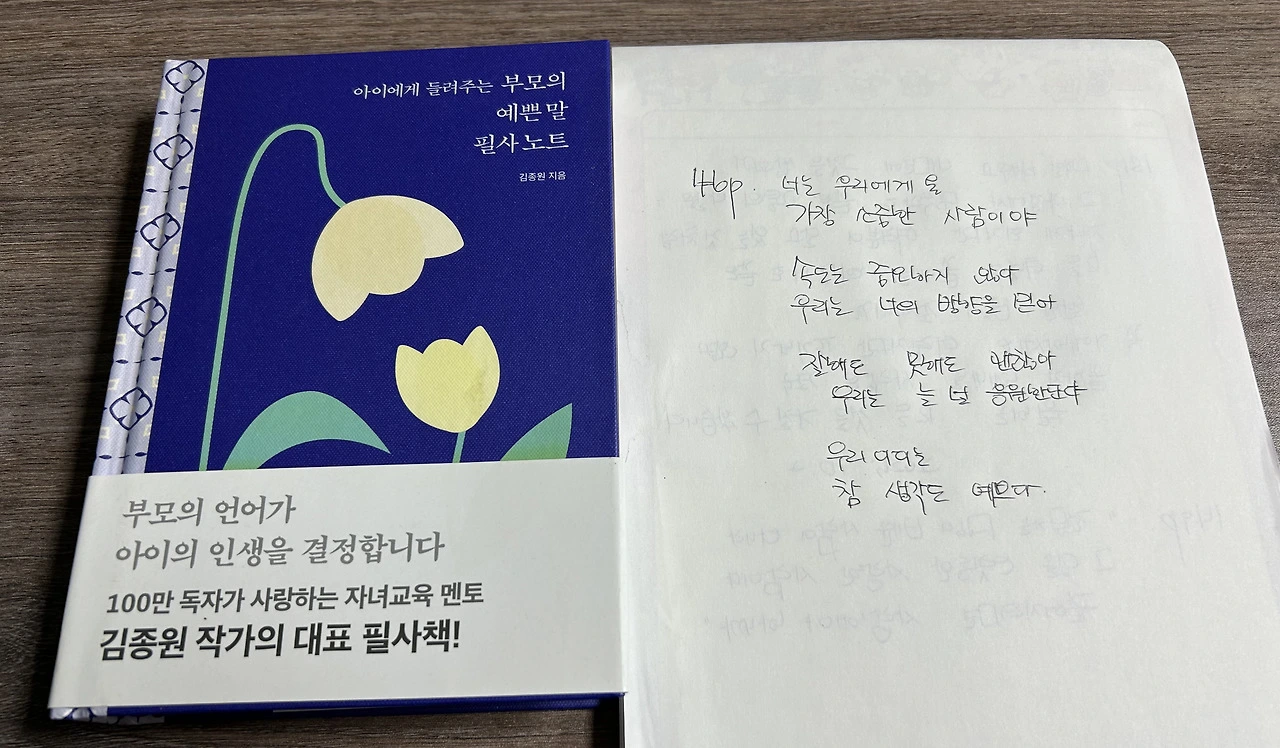 아이에게 들려주는 부모의
예쁜 말
필사 노트
김종원 지음
부모의 언어가
아이의 인생을 결정합니다
100만 독자가 사랑하는 자녀교육 멘토
김종원 작가의 대표 필사책!
46p. 너는 우리에게 올
가장 소중한 사람이야
속도는 중요하지 않다
우리는 너의 방향을 믿어
잘해도 못해도 괜찮아
우리는 늘 널 응원한단다
우리
참 생각도 예쁘다.